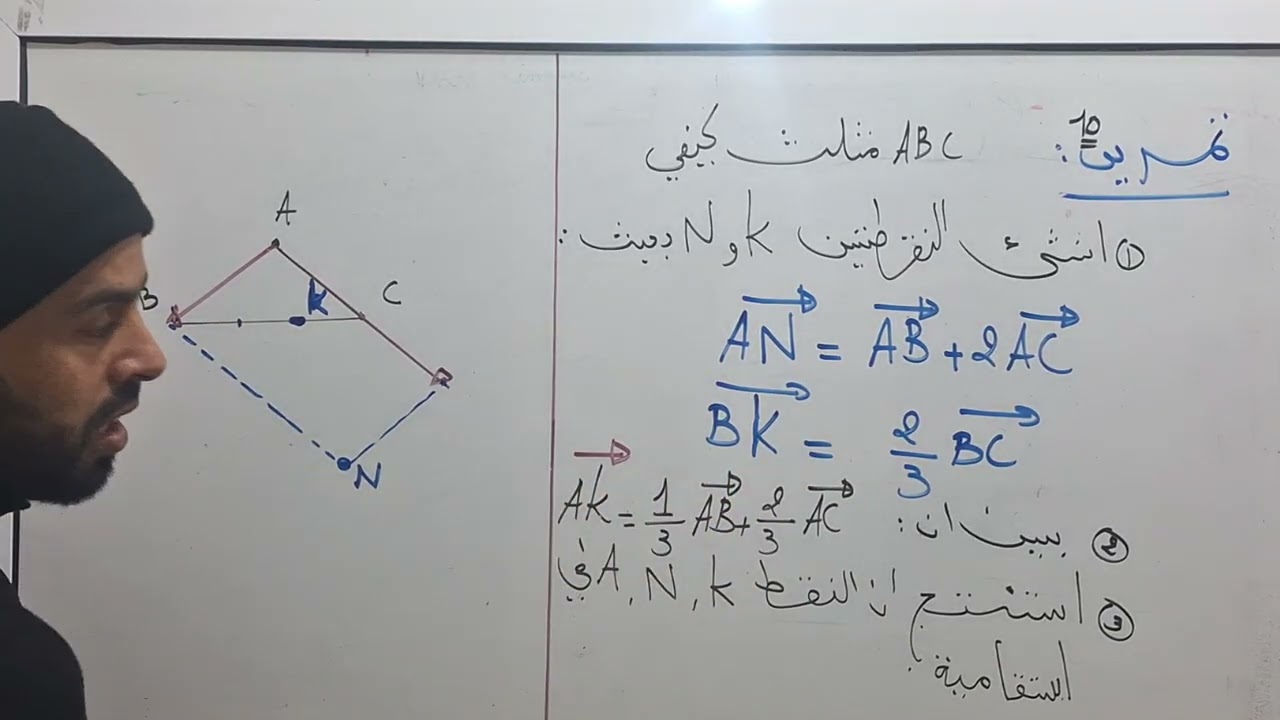 تمرين 10: ABC مثلث كيفي
① انشئ النقطتين K و N بحيث:
AN = AB + 2AC
BK = 2/3 BC
② بين ان: AK = 1/3 AB + 2/3 AC
③ استنتج ان النقط A, N, K في
استقامية
A
B
K
C
N